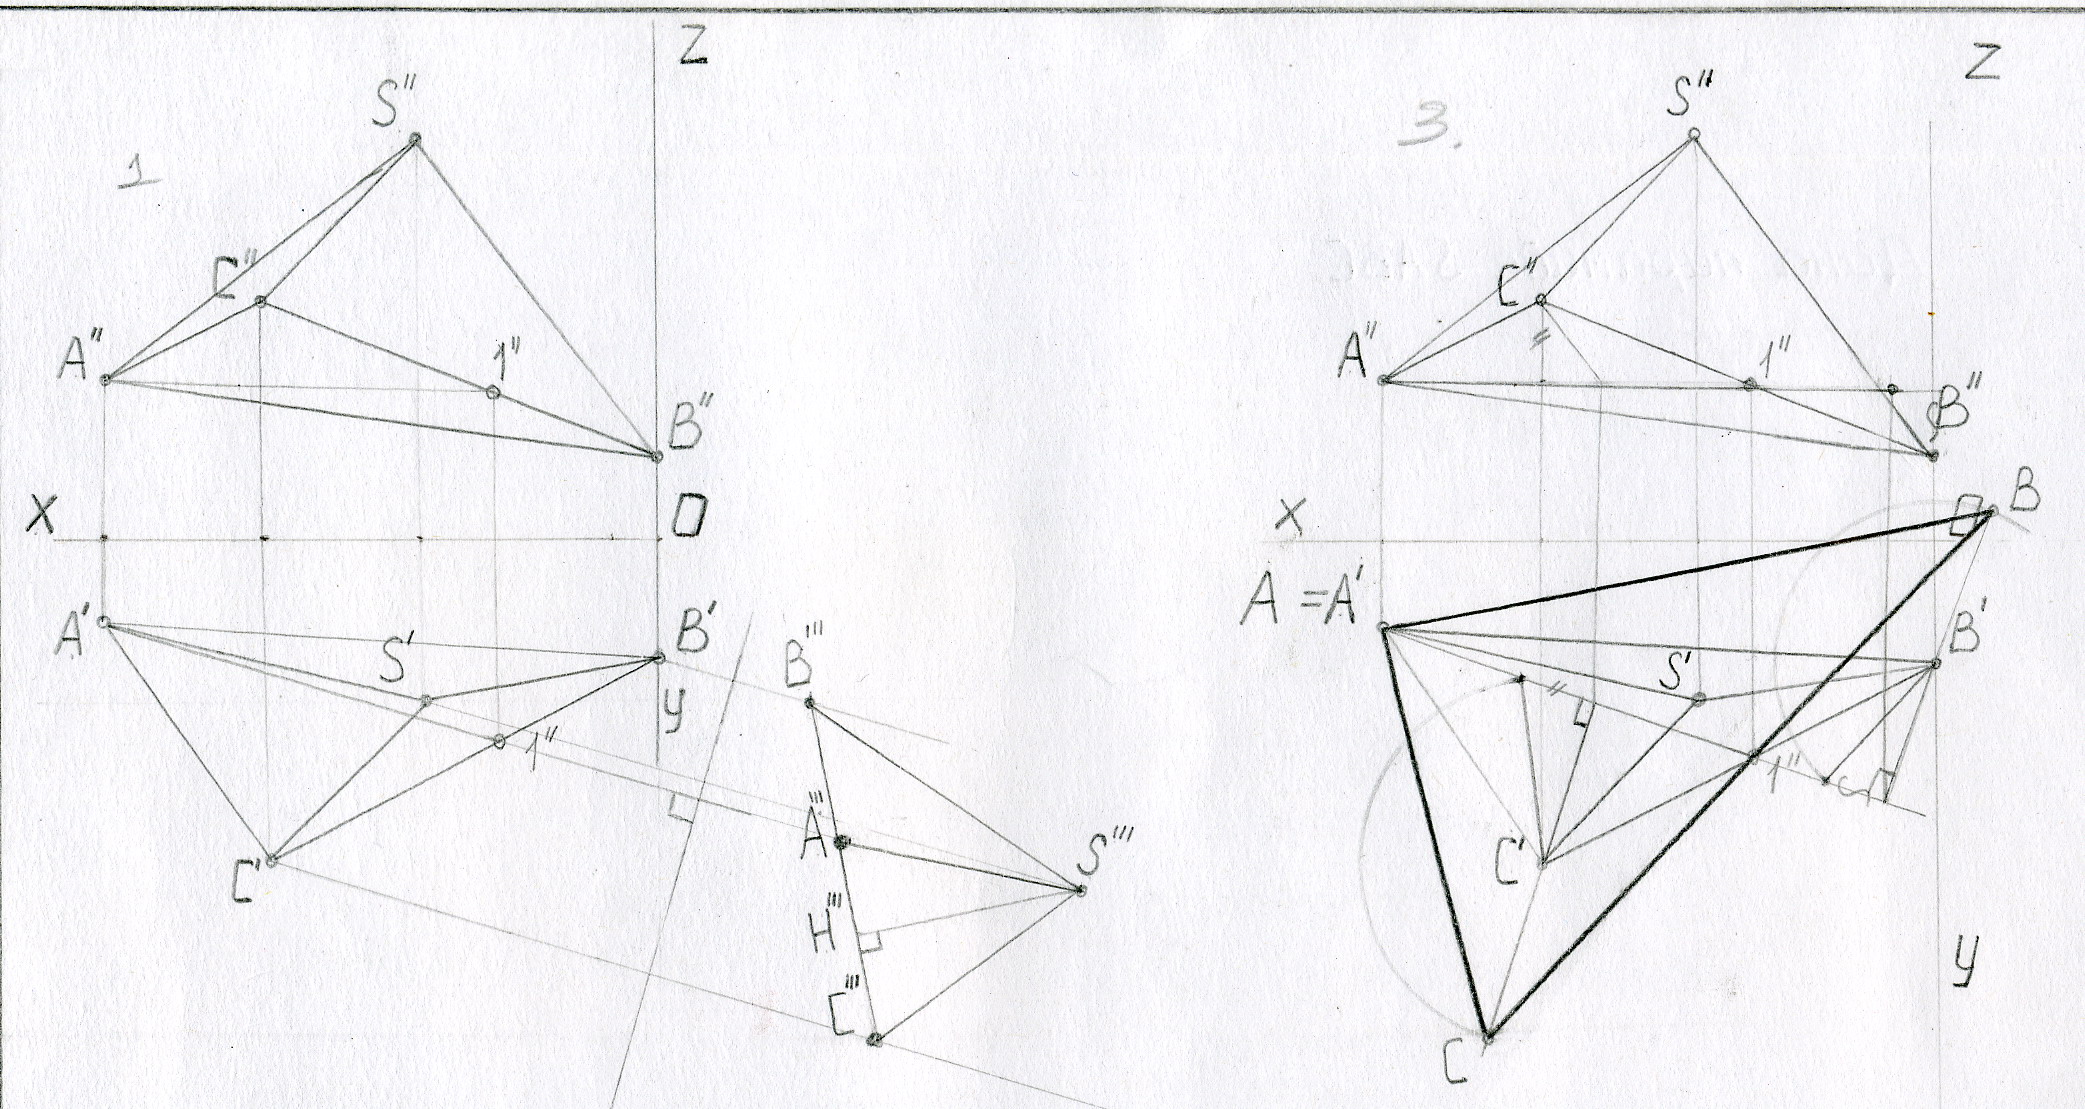 Z
S"
1
C"
A"
1"
B"
X
O
A'
S'
B'
y
1"
C'
B'''
A'''
S'''
H'''
C'''
Z
S"
3.
C"
A"
1"
B"
X
B
A = A'
B'
S'
1"
C'
y
C